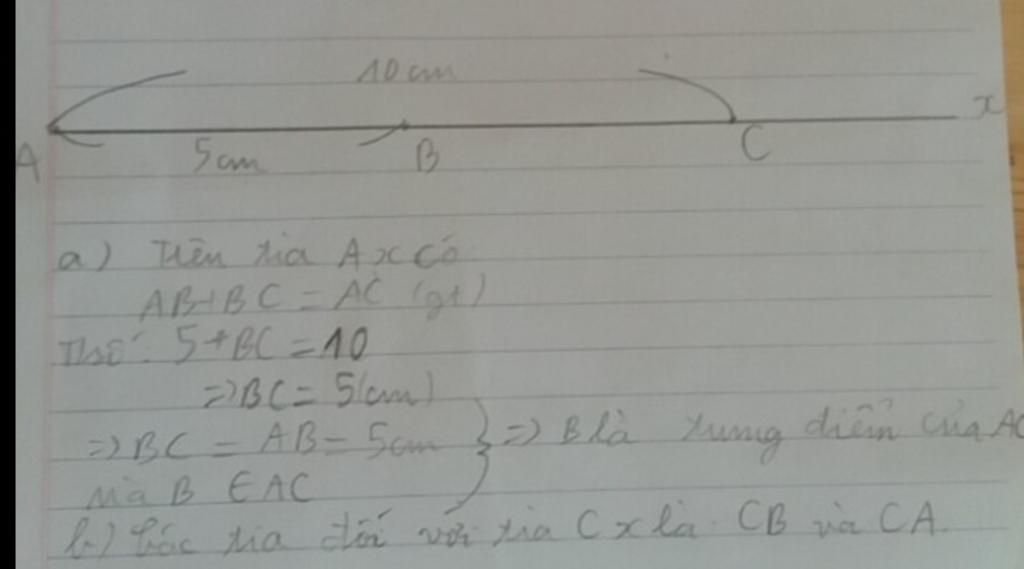 10cm
A 5cm B C x
a) Trên tia Ax có
AB+BC = AC (gt)
Thế: 5+BC=10
=> BC = 5(cm)
=> BC = AB = 5cm } => B là trung điểm của AC
mà B ∈ AC
b) Các tia đối với tia Cx là CB và CA.